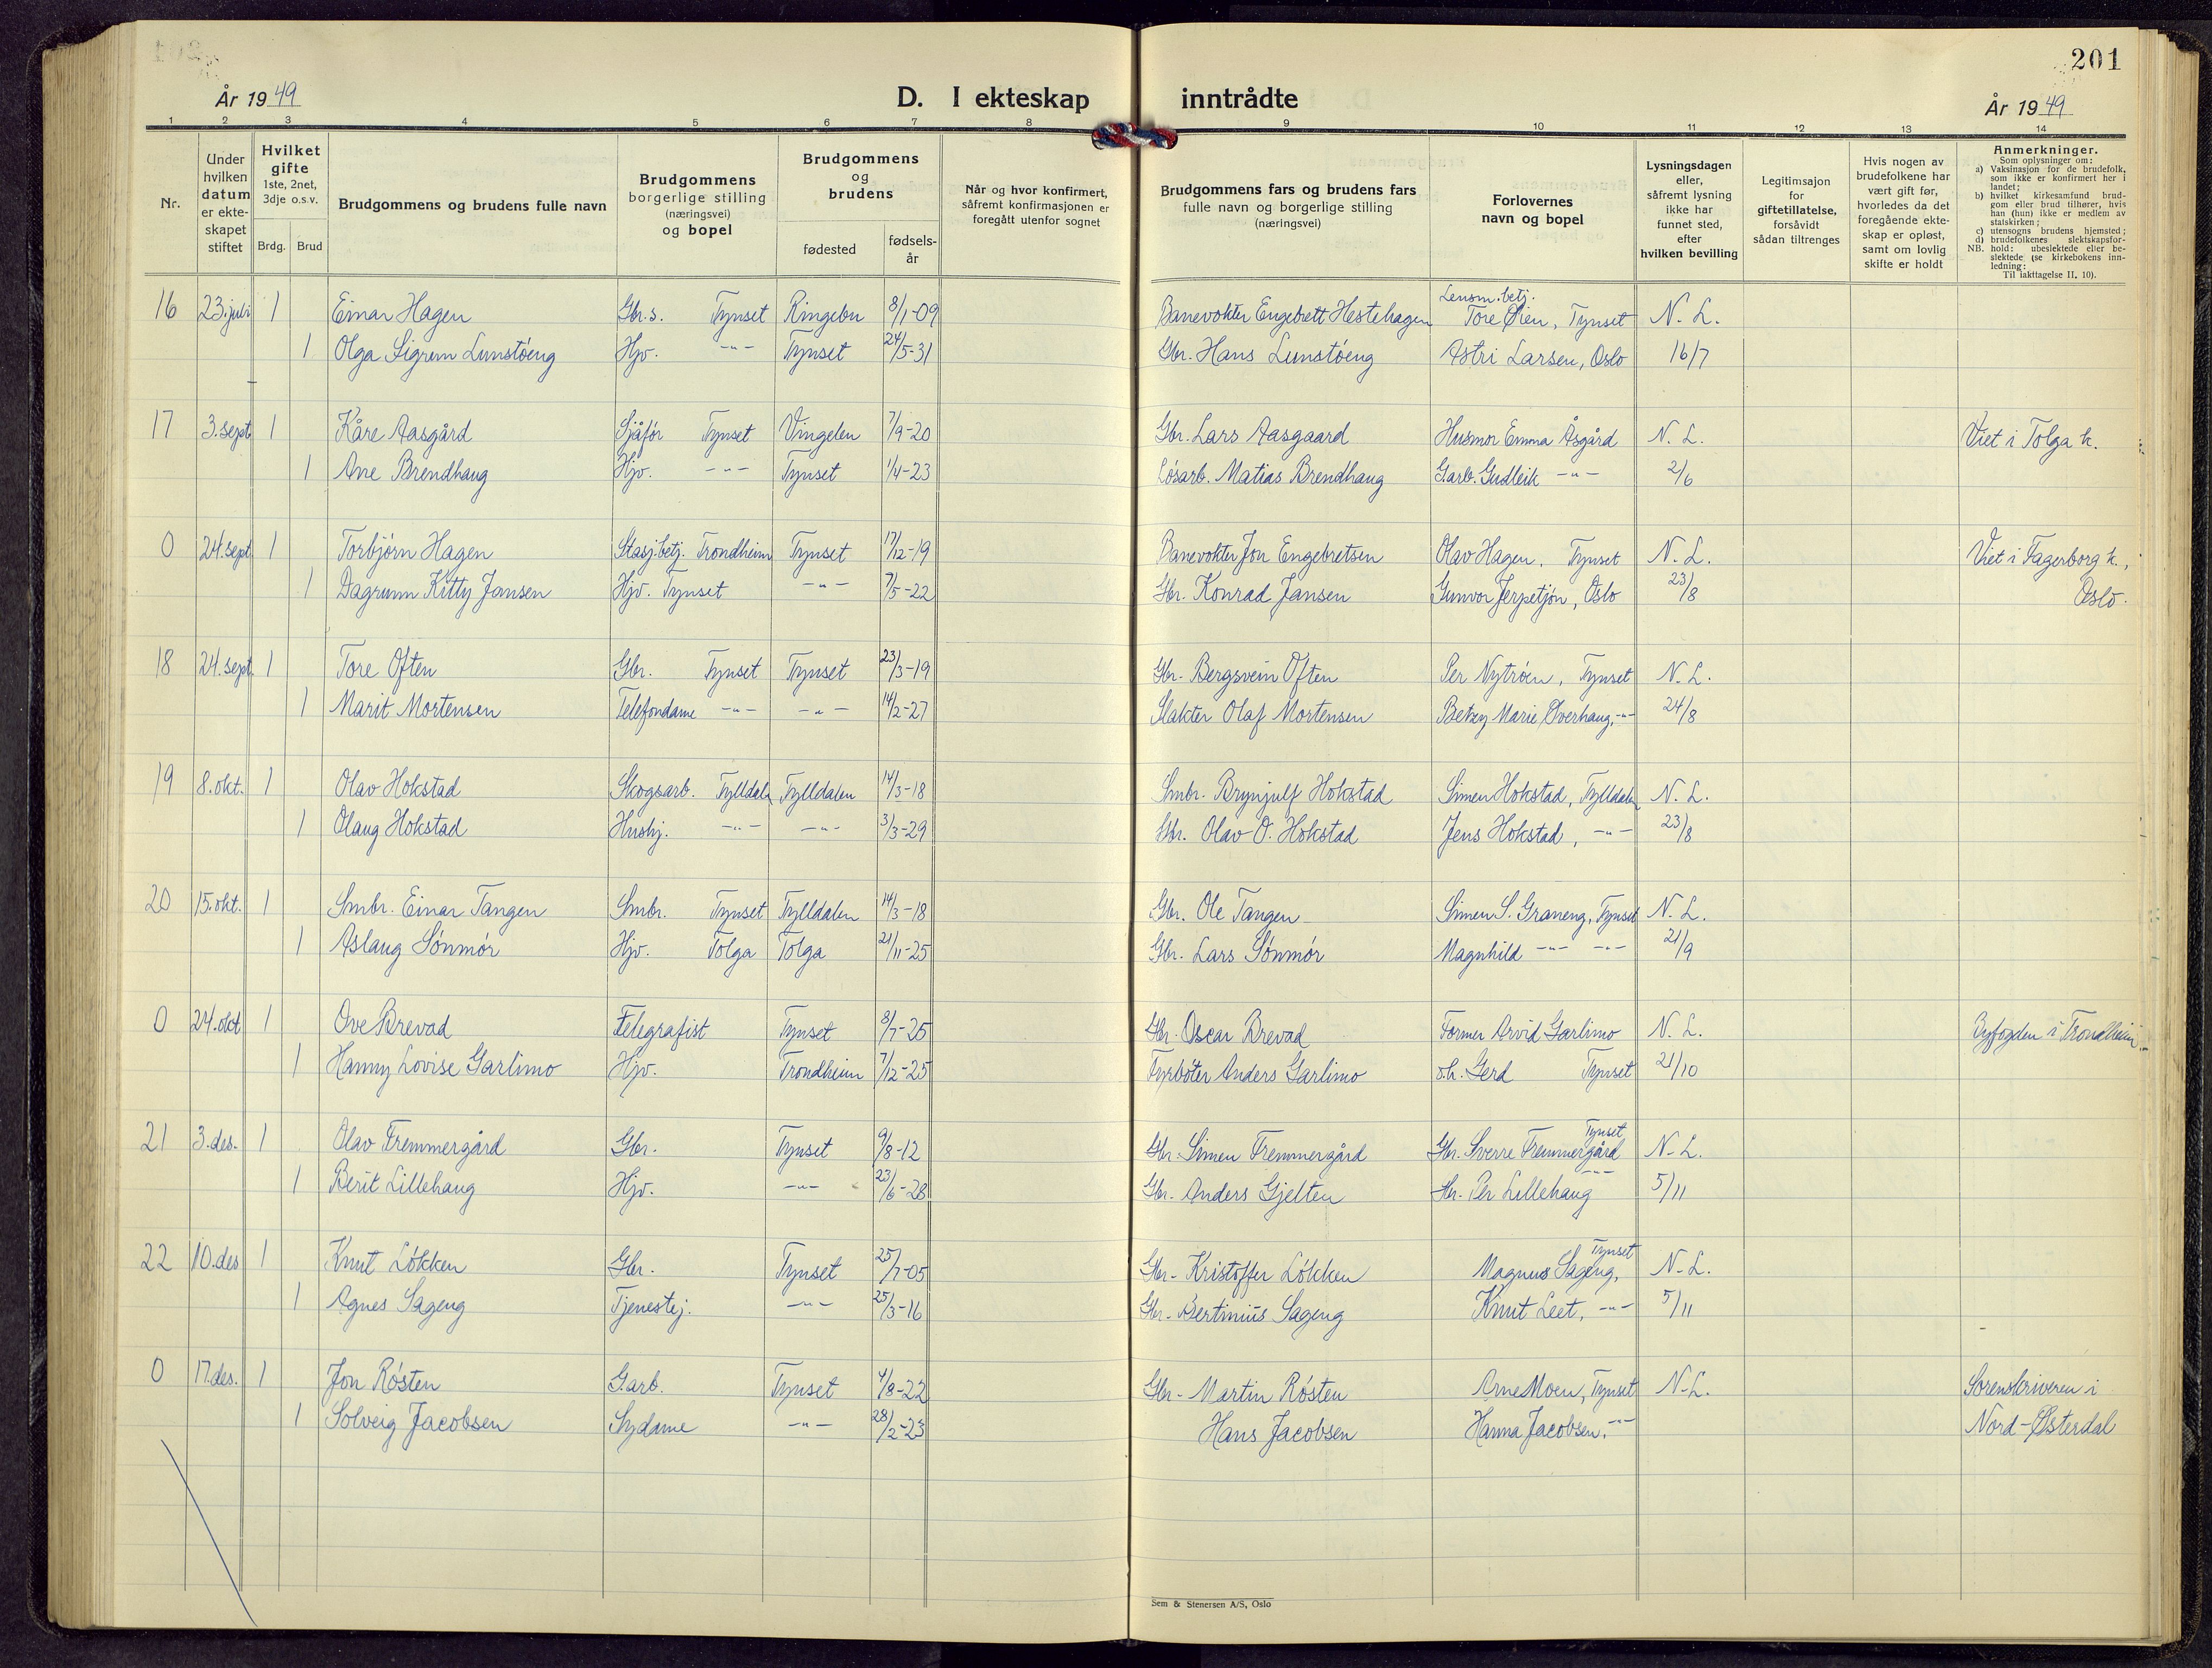 201
År 1949
D. I ekteskap inntrådte
År 1949
1 2 3 4 5 6 7 8 9 10 11 12 13 14
Nr.
Under hvilken datum er ekte-skapet stiftet
Hvilket gifte 1ste, 2net, 3dje o.s.v.
Brdg. Brud
Brudgommens og brudens fulle navn
Brudgommens borgerlige stilling (næringsvei) og bopel
Brudgommens og brudens
fødested fødsels-år
Når og hvor konfirmert, såfremt konfirmasjonen er foregått utenfor sognet
Brudgommens fars og brudens fars fulle navn og borgerlige stilling (næringsvei)
Forlovernes navn og bopel
Lysningsdagen eller, såfremt lysning ikke har funnet sted, efter hvilken bevilling
Legitimsajon for giftetillatelse, forsåvidt sådan tiltrenges
Hvis nogen av brudefolkene har vært gift før, hvorledes da det foregående ekte-skap er opløst, samt om lovlig skifte er holdt
Anmerkninger.
Som oplysninger om:
a) Vaksinasjon for de brudefolk, som ikke er konfirmert her i landet;
b) hvilket kirkesamfund brud-gom eller brud tilhører, hvis han (hun) ikke er medlem av statskirken;
c) utensogns brudens hjemsted;
d) brudefolkenes slektskapsfor-
NB. hold: ubeslektede eller be-slektede (se kirkebokens inn-ledning: Til iakttagelse II, 10).
Lensm.betj.
16 23.juli 1 Einar Hagen Gbr.s. Tynset Ringebu 8/1-09 Banevokter Engebrett Hestehagen Tore Øien, Tynset N. L.
1 Olga Sigrun Lunstøeng Hjv. -"- Tynset 24/5-31 Gbr. Hans Lunstøeng Astri Larsen, Oslo 16/7
17 3.sept 1 Kåre Aasgård Sjåfør Tynset Vingelen 7/9-20 Gbr. Lars Aasgaard Husmor Emma Åsgård N. L. Viet i Tolga k.
1 Ane Brendhaug Hjv. -"- Tynset 1/4-23 Løsarb. Matias Brendhaug G.arb. Gudleik -"- 2/6
0 24.sept 1 Torbjørn Hagen Stasj.betj. Trondheim Tynset 17/12-19 Banevokter Jon Engebretsen Olav Hagen, Tynset N. L. Viet i Fagerborg k.,
1 Dagrunn Kitty Jansen Hjv. Tynset -"- 7/5-22 Gbr. Konrad Jansen Gunvor Jerpetjøn, Oslo 23/8 Oslo.
18 24.sept. 1 Tore Often Gbr. Tynset Tynset 23/3-19 Gbr. Bergsvein Often Per Nytrøen, Tynset N. L.
1 Marit Mortensen Telefondame -"- -"- 14/2-27 Slakter Olaf Mortensen Betzy Marie Øverhaug, -"- 24/8
19 8.okt. 1 Olav Hokstad Skogsarb. Tylldalen Tylldalen 14/3-18 Smbr. Brynjulf Hokstad Simen Hokstad, Tylldalen N. L.
1 Olaug Hokstad Hushj. -"- -"- 3/3-29 Gbr. Olav O. Hokstad Jens Hokstad, -"- 23/8
20 15.okt. 1 Smbr. Einar Tangen Smbr. Tynset Tylldalen 14/3-18 Gbr. Ole Tangen Simen S. Graneng, Tynset N. L.
1 Aslaug Sønmør Hjv. Tolga Tolga 21/11-25 Gbr. Lars Sønmør Magnhild -"- -"- 21/9
0 24.okt 1 Ove Brevad Telegrafist Tynset 8/7-25 Gbr. Oscar Brevad Former Arvid Garlimo N. L. Byfogden i Trondheim.
1 Hanny Lovise Garlimo Hjv. Trondheim 7/12-25 Fyrbøter Anders Garlimo o.h. Gerd Tynset 21/10
Tynset
21 3.des. 1 Olav Fremmergård Gbr. Tynset 9/8-12 Gbr. Simen Fremmergård Gbr. Sverre Fremmergård N-L.
1 Berit Lillehaug Hjv. -"- 23/6-28 Gbr. Anders Gjelten Gbr. Per Lillehaug -"- 5/11
Tynset
22 10.des 1 Knut Løkken Gbr. Tynset 25/7-05 Gbr. Kristoffer Løkken Magnus Sageng, N-L.
1 Agnes Sageng Tjenestej. -"- 25/3-16 Gbr. Bertinius Sageng Knut Leet, -"- 5/11
0 17.des. 1 Jon Røsten G.arb. Tynset 4/8-22 Gbr. Martin Røsten Arne Moen, Tynset N-L. Sorenskriveren i
1 Solveig Jacobsen Sydame -"- 28/2-23 Hans Jacobsen Hanna Jacobsen, -"- Nord-Østerdal
Sem & Stenersen A/S, Oslo